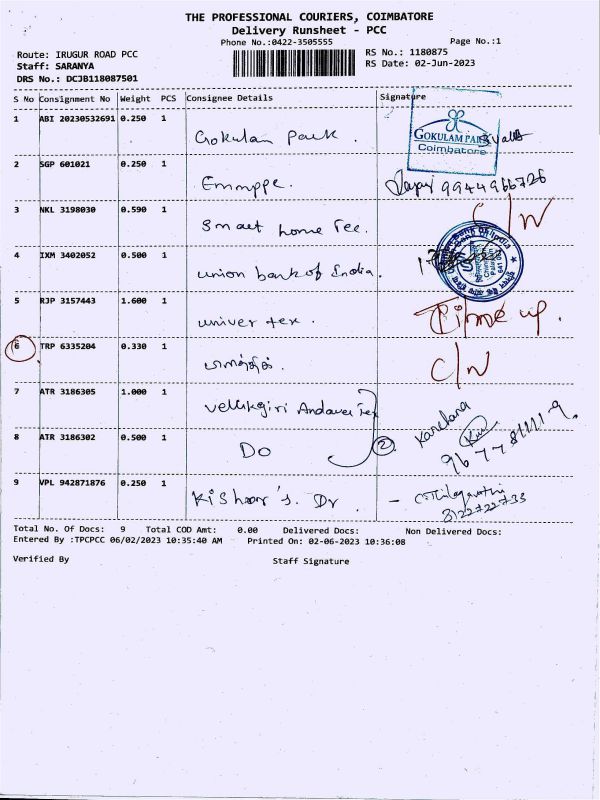 THE PROFESSIONAL COURIERS, COIMBATORE
Delivery Runsheet - PCC
Phone No.:0422-3505555
Page No.:1
Route: IRUGUR ROAD PCC
RS No.: 1180875
Staff: SARANYA
RS Date: 02-Jun-2023
DRS No.: DCJB118087501
S No Consignment No Weight PCS Consignee Details Signature
1 ABI 20230532691 0.250 1 Gokulam Park.
GOKULAM PARK
Coimbatore
2 SGP 601021 0.250 1 Emmppe. 9944966726
3 NKL 3198030 0.590 1 Smart home Tec. C/N
4 IXM 3402052 0.500 1 union bank of India.
5 RJP 3157443 1.600 1 univer tex. Time up.
6 TRP 6335204 0.330 1 C/N
7 ATR 3186305 1.000 1 Vellikgiri Andaver Tex
Kanchana
8 ATR 3186302 0.500 1 Do 2
9677811119.
9 VPL 942871876 0.250 1 Kishoor's. Dr. -
8122722733
Total No. Of Docs: 9 Total COD Amt: 0.00 Delivered Docs: Non Delivered Docs:
Entered By :TPCPCC 06/02/2023 10:35:40 AM Printed On: 02-06-2023 10:36:08
Verified By Staff Signature